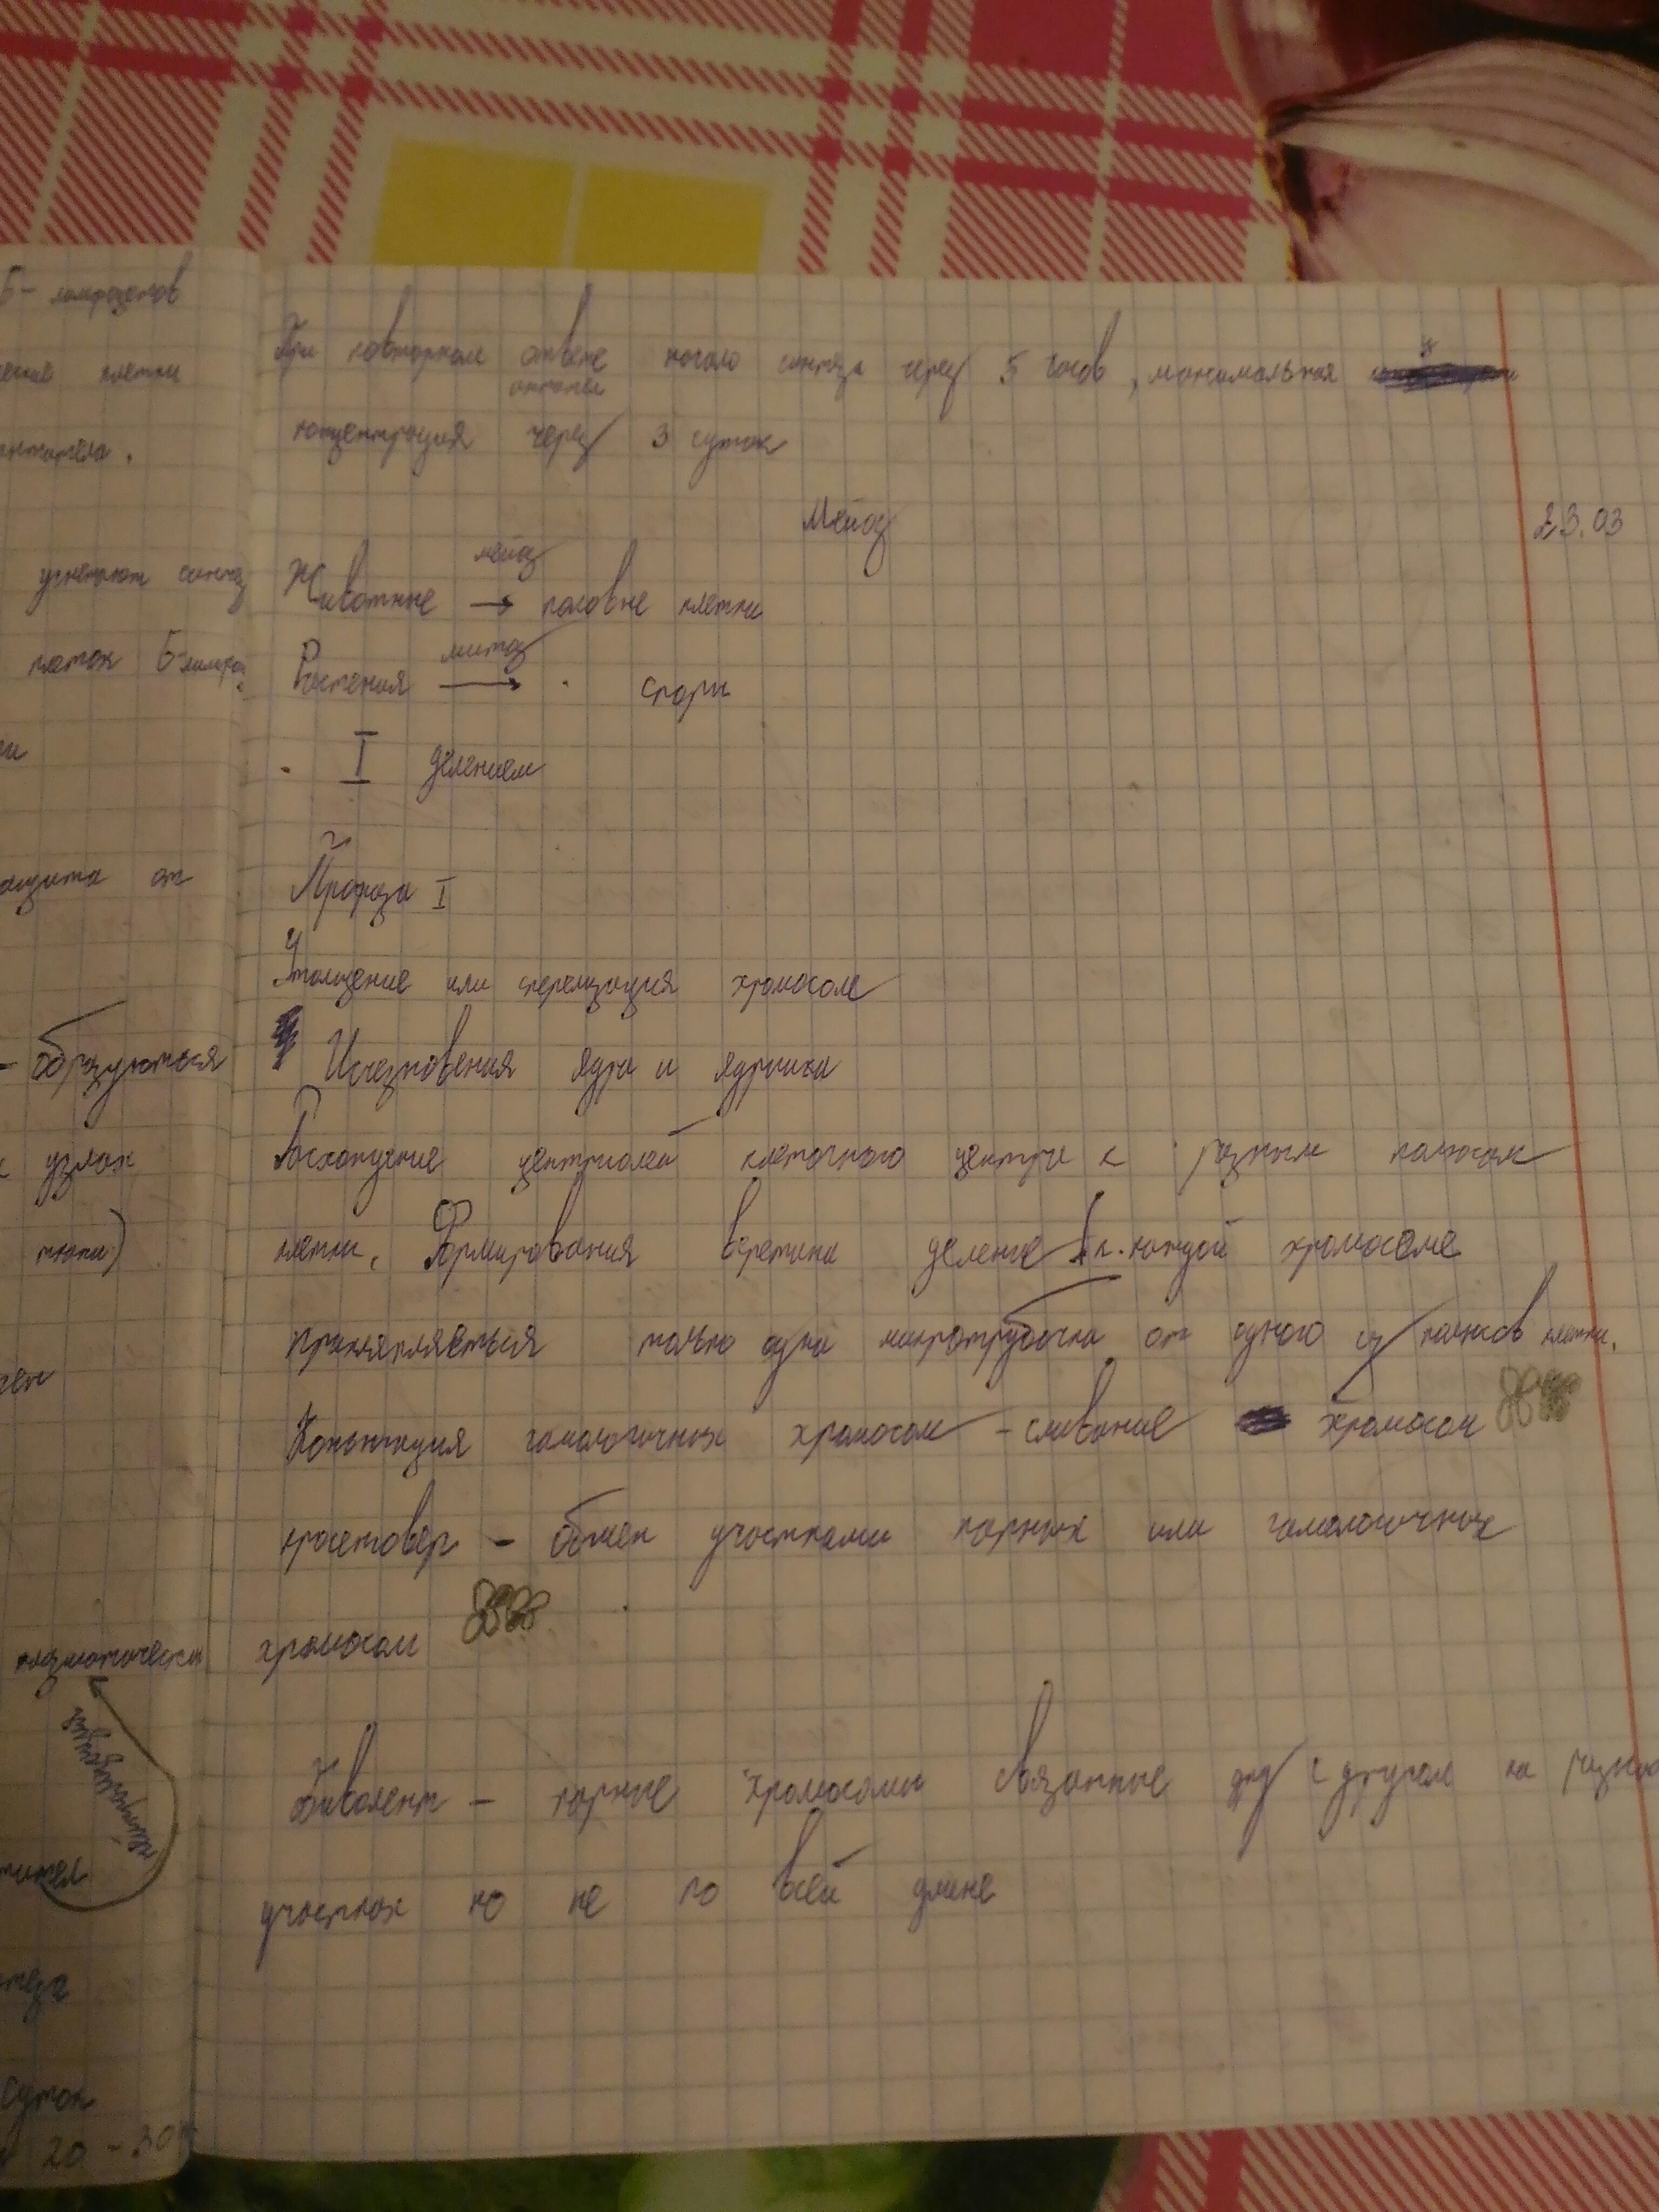 Б- лимфоцитов
клетки
антитела.
угнетают синтез
клеток Б-лимфо
защита от
- образуються
к узлах
ткани)
плазматически
суток
20 - 30
При повторном ответе начало синтеза через 5 часов, максимальная
антиген
концентрация через 3 суток
Мейоз
23.03
мейоз
Животные → половые клетки
митоз
Растения → споры
I делением
Профаза I
Утолщение или сперализация хромосом
Исчезновения ядра и ядрышка
Расхождение центриолей клеточного центра к разным полюсам
клетки. Формирования веретина деление к каждой хромосоме
прикрепляеться только одна микротрубочка от одного из полюсов клетки.
Коньюгация гомологичных хромосом - сливание хромосом
кросетовер - обмен участками парных или гомологичных
хромосом
Бивалент - парные хромосомы связанные друг с другом на разных
участках но не по всей длине